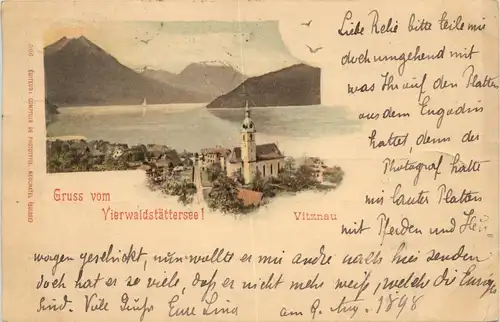 366 EDITEURS, COMPTOIR DE PHOTOTYPIE, NEUCHATEL (SUISSE)
Gruss vom
Vierwaldstättersee!
Vitznau
Liebe Relie bitte teile mir
doch umgehend mit
was Ihr auf den Platten
aus dem Engadin
hattet, denn der
Photograf hatte
mir lauter Platten
mit Pferden und Heu-
wagen geschickt, nun wollte er mir andre nach hier senden
doch hat er so viele, daß er nicht mehr weiß, welch die
sind. Viele Grüße Eure Lina am 9. Aug. 1898